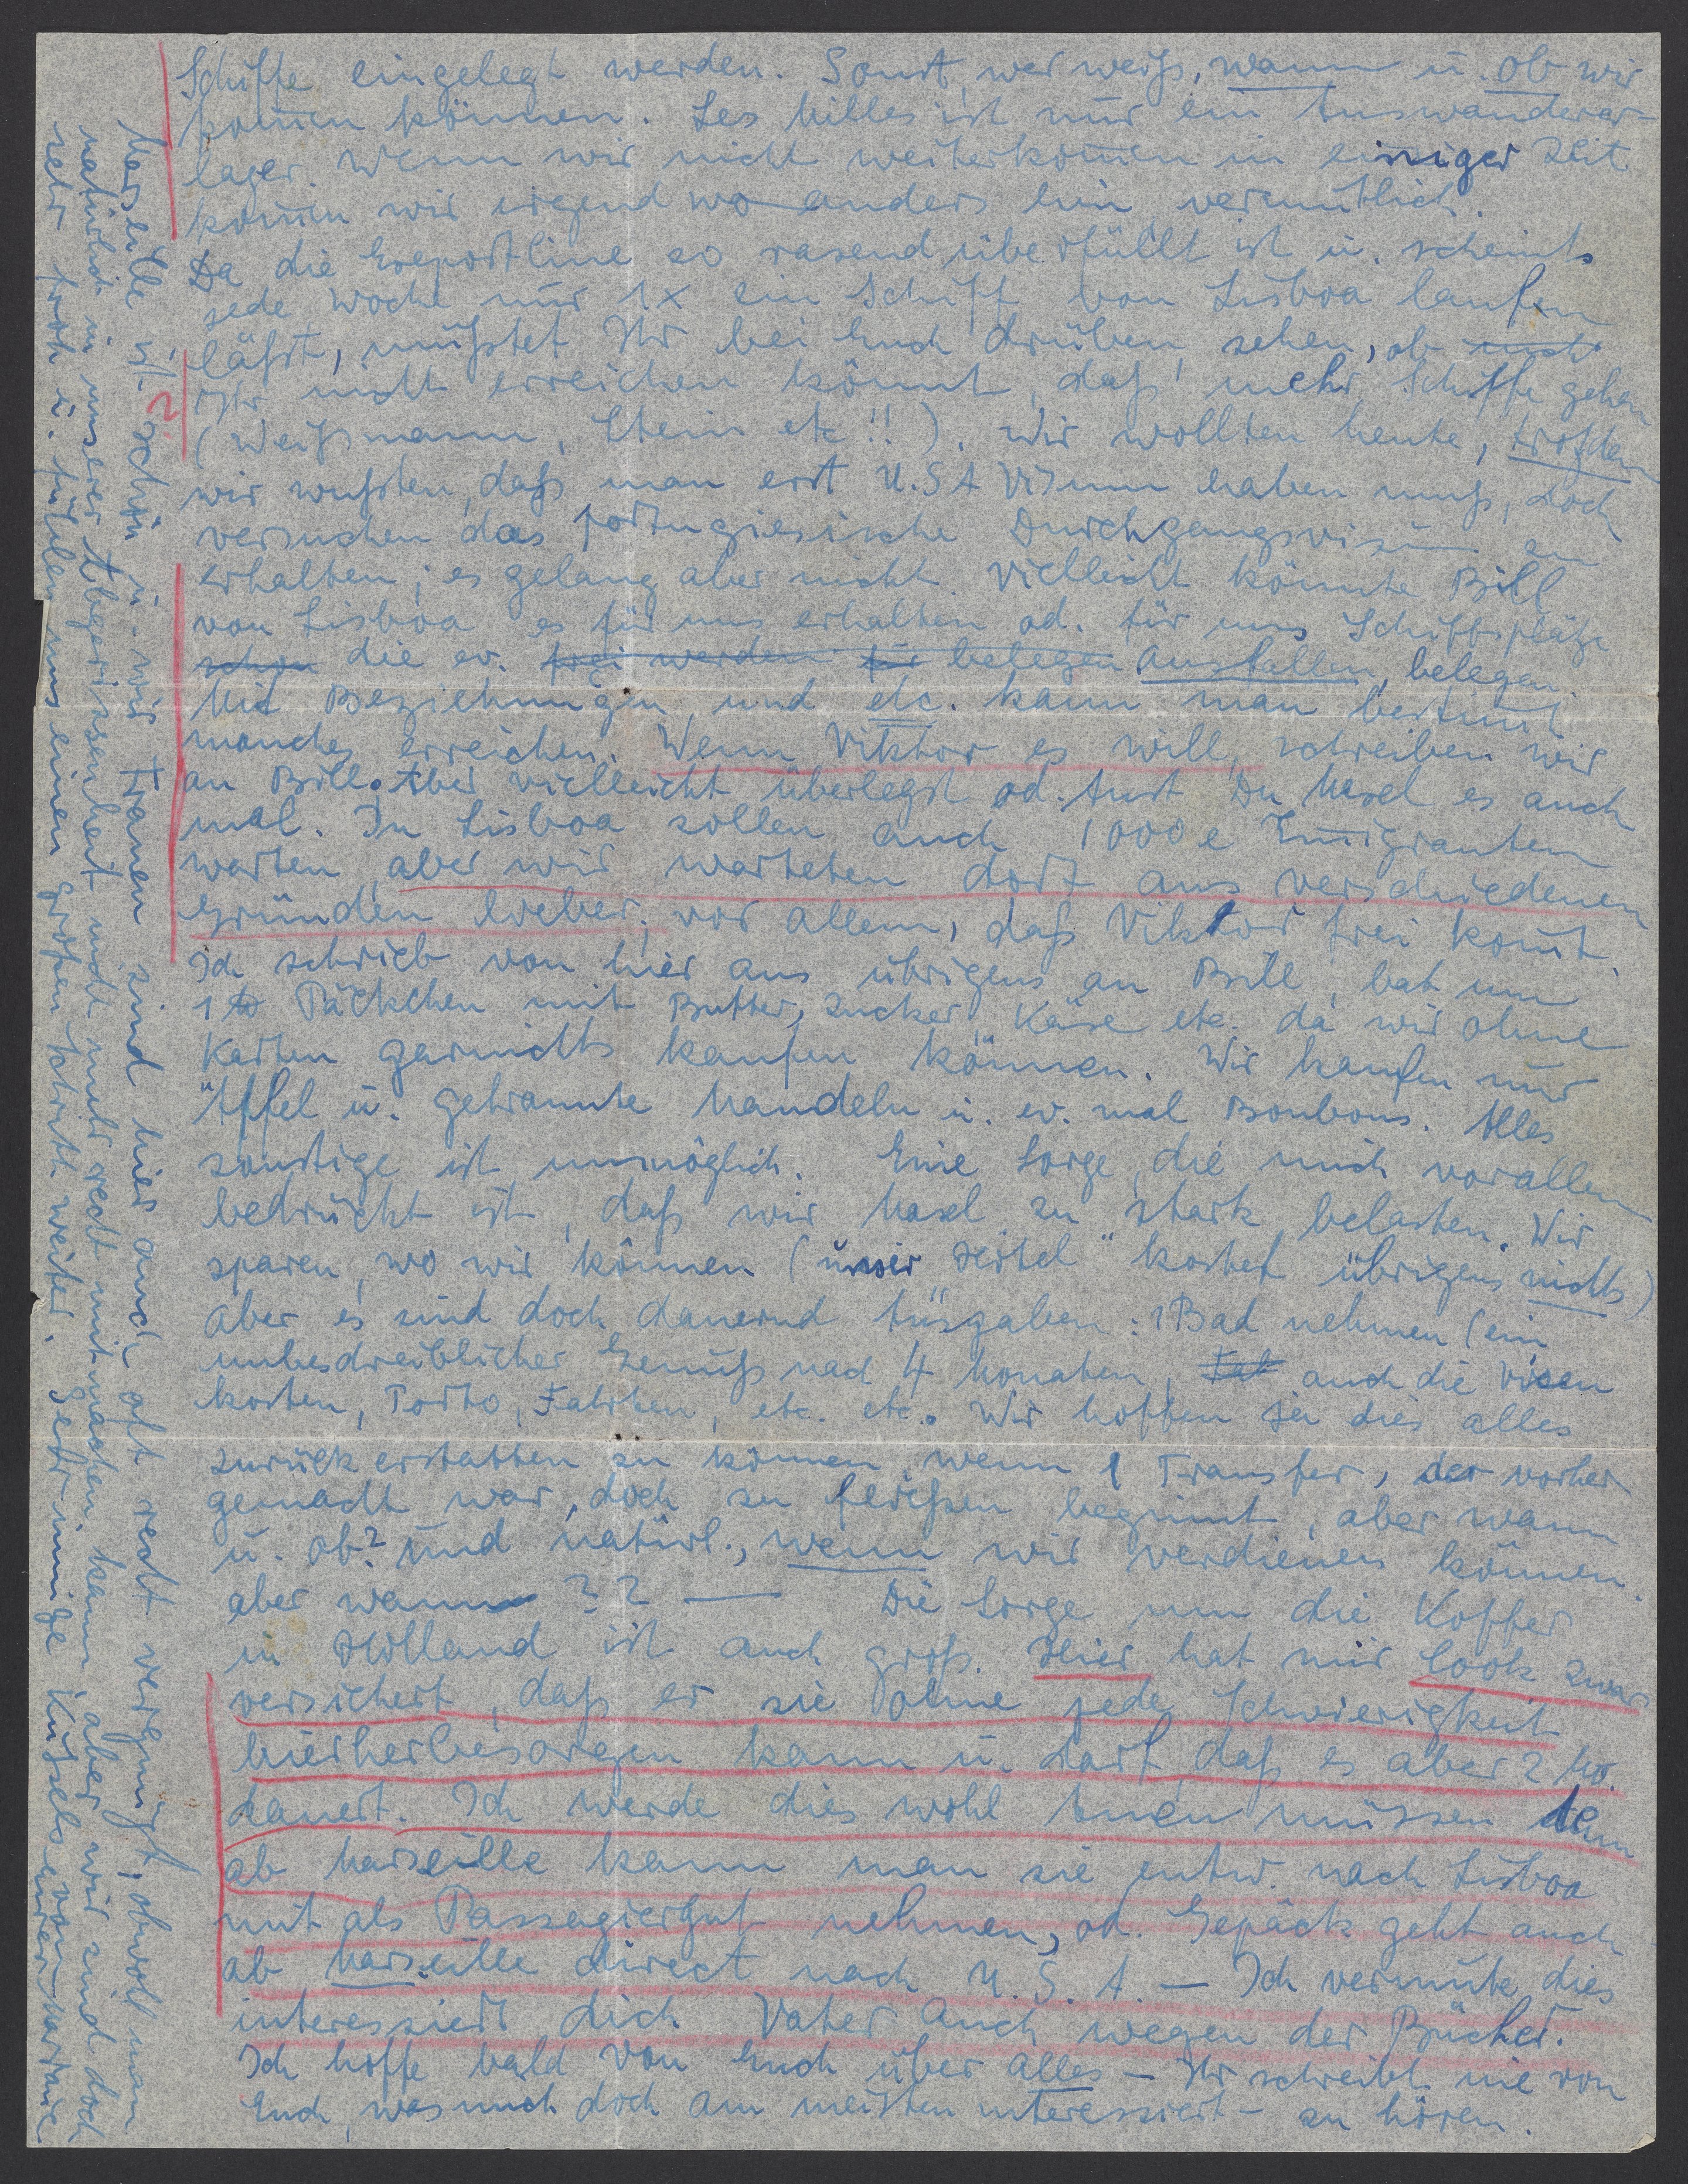 Schiffe eingelegt werden. Sonst, wer weiß, wann u. ob wir
kommen können. Les Milles ist nur ein Auswanderer-
lager. Wenn wir nicht weiterkommen in einiger Zeit
kommen wir irgend wo anders hin, vermutlich.
Da die Exportline so rasend überfüllt ist u. scheints
jede Woche nur 1x ein Schiff von Lisboa laufen
läßt, müßtet Ihr bei Euch drüben sehen, ob
Ihr nicht erreichen könnt, daß mehr Schiffe gehen
(Weißmann, Stein etc!!). Wir wollten heute, trotzdem
wir wußten, daß man erst U.S.A Visum haben muß, doch
versuchen das portugiesische Durchgangsvisum zu
erhalten; es gelang aber nicht. Vielleicht könnte Bill
von Lisboa es für uns erhalten od. für uns Schiffsplätze
schon die ev. frei werden für belegen ausfallen, belegen.
Mit Beziehungen und etc. kann man bestimmt
manches erreichen. Wenn Viktor es will, schreiben wir
an Bill. Aber vielleicht überlegst od. tust Du Mosel es auch
mal. In Lisboa sollen auch 1000e Emigranten
warten, aber wir warteten dort aus verschiedenen
Gründen lieber, vor allem, daß Viktor frei kommt.
Ich schrieb von hier aus übrigens an Bill, bat um
1 Päckchen mit Butter, Zucker, Käse etc. da wir ohne
Karten garnichts kaufen können. Wir kaufen nur
Äpfel u. gebrannte Mandeln u. ev. mal Bonbons. Alles
sonstige ist unmöglich. Eine Sorge, die mich vorallem
bedrückt ist, daß wir Mosel zu stark belasten. Wir
sparen, wo wir können (unser „Hotel" kostet übrigens nichts)
aber es sind doch dauernd Ausgaben: 1 Bad nehmen (ein
unbeschreiblicher Genuß nach 4 Monaten, auch die Visen
kosten, Porto, Fahrten, etc. etc. Wir hoffen ja dies alles
zurückerstatten zu können, wenn 1 Transfer, der vorher
gemacht war, doch zu fließen beginnt, aber wann
u. ob? und natürl., wenn wir verdienen können.
aber wann?? — Die Sorge um die Koffer
in Holland ist auch groß. Hier hat mir Cook zwar
versichert, daß er sie ohne jede Schwierigkeit
hierherbesorgen kann u. darf, daß es aber 2 Mo.
dauert. Ich werde dies wohl tuen müssen denn
ab Marseille kann man sie entw. nach Lisboa
mit als Passagiergut nehmen, od. Gepäck geht auch
ab Marseille direct nach U.S.A. — Ich vermute, dies
interessiert dich Vater auch wegen der Bücher.
Ich hoffe bald von Euch über alles – Ihr schreibt nie von
Euch, was mich doch am meisten interessiert – zu hören.
Marseille ist schön u. wir Frauen sind hier auch oft recht vergnügt, obwohl man
natürlich in unserer Abgerissenheit nicht mehr recht mitmachen kann, aber wir sind doch
sehr froh u. fühlen uns einen großen Schritt weiter. Sehr innige Küsse von Eurer